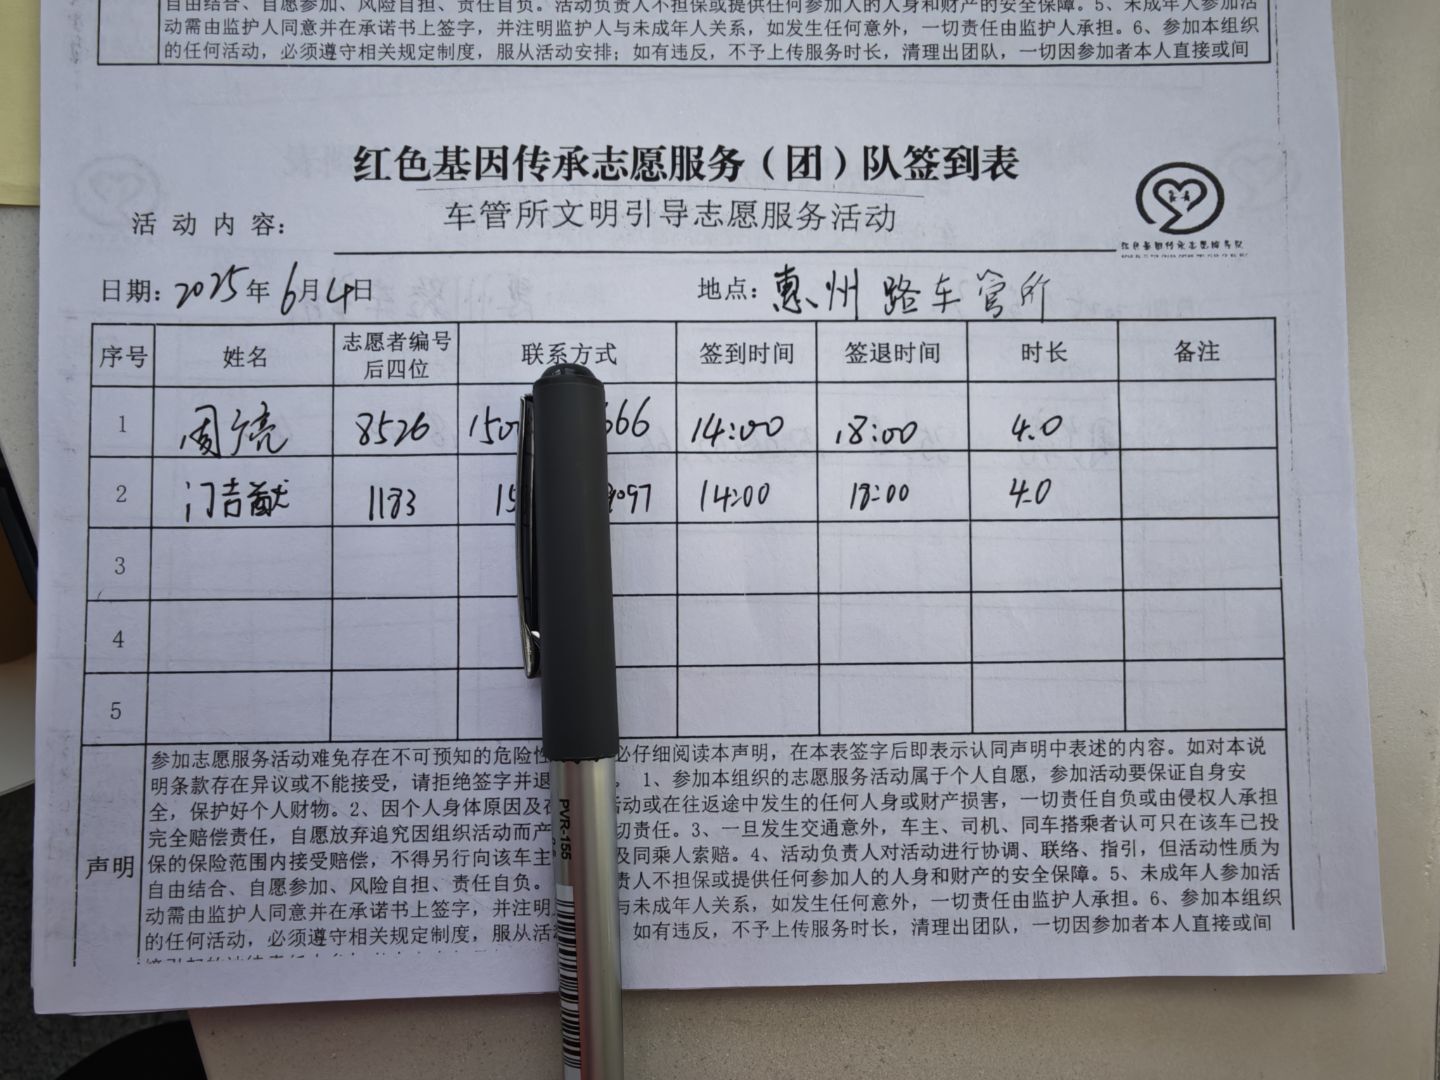 自由结合、自愿参加、风险自担、责任自负。活动负责人不担保或提供任何参加人的人身和财产的安全保障。5、未成年人参加活
动需由监护人同意并在承诺书上签字，并注明监护人与未成年人关系，如发生任何意外，一切责任由监护人承担。6、参加本组织
的任何活动，必须遵守相关规定制度，服从活动安排；如有违反，不予上传服务时长，清理出团队，一切因参加者本人直接或间
红色基因传承志愿服务（团）队签到表
活动内容： 车管所文明引导志愿服务活动
红色基因传承志愿服务队
日期：2025年6月4日 地点：惠州路车管所
序号 姓名 志愿者编号后四位 联系方式 签到时间 签退时间 时长 备注
1 周亮 8526 150 666 14:00 18:00 4.0
2 门吉猷 1183 15 9097 14:00 18:00 4.0
3
4
5
声明
参加志愿服务活动难免存在不可预知的危险性 必仔细阅读本声明，在本表签字后即表示认同声明中表述的内容。如对本说
明条款存在异议或不能接受，请拒绝签字并退 。1、参加本组织的志愿服务活动属于个人自愿，参加活动要保证自身安
全，保护好个人财物。2、因个人身体原因及在 活动或在往返途中发生的任何人身或财产损害，一切责任自负或由侵权人承担
完全赔偿责任，自愿放弃追究因组织活动而产 切责任。3、一旦发生交通意外，车主、司机、同车搭乘者认可只在该车已投
保的保险范围内接受赔偿，不得另行向该车主 及同乘人索赔。4、活动负责人对活动进行协调、联络、指引，但活动性质为
自由结合、自愿参加、风险自担、责任自负。 责人不担保或提供任何参加人的人身和财产的安全保障。5、未成年人参加活
动需由监护人同意并在承诺书上签字，并注明 与未成年人关系，如发生任何意外，一切责任由监护人承担。6、参加本组织
的任何活动，必须遵守相关规定制度，服从活 如有违反，不予上传服务时长，清理出团队，一切因参加者本人直接或间
PVR-155